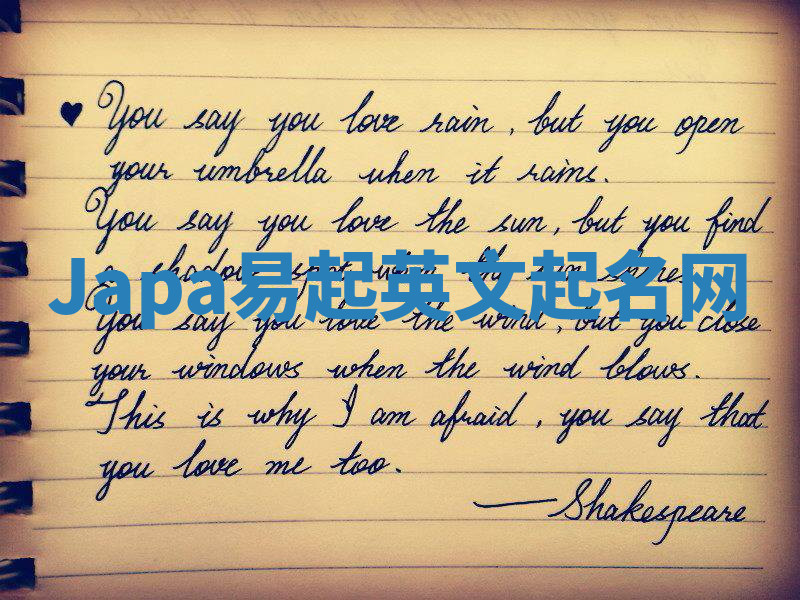 ♥ You say you love rain, but you open
your umbrella when it rains.
You say you love the sun, but you find
a shadow spot when the sun shines.
Japa易起英文起名网
You say you love the wind, but you close
your windows when the wind blows.
This is why I am afraid, you say that
you love me too.
—Shakespeare